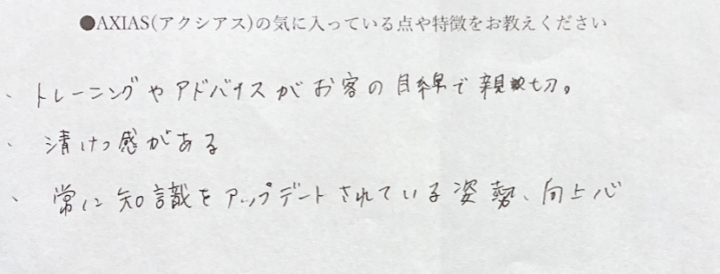 ●AXIAS(アクシアス)の気に入っている点や特徴をお教えください
、トレーニングやアドバイスがお客の目線で親切。
、清けつ感がある
、常に知識をアップデートされている姿勢、向上心